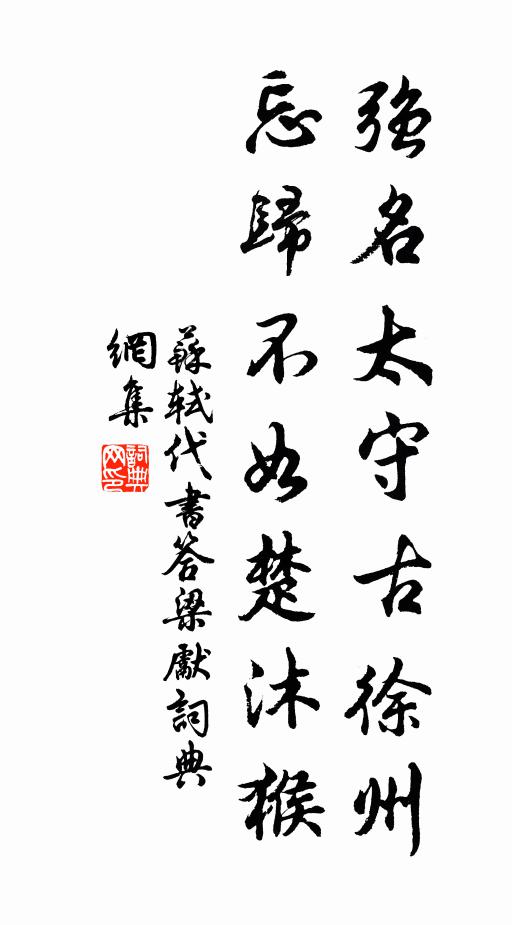 強名太守古徐州
忘歸不如楚沐猴
蘇軾代書答梁獻詞典
網集
詞典
网印